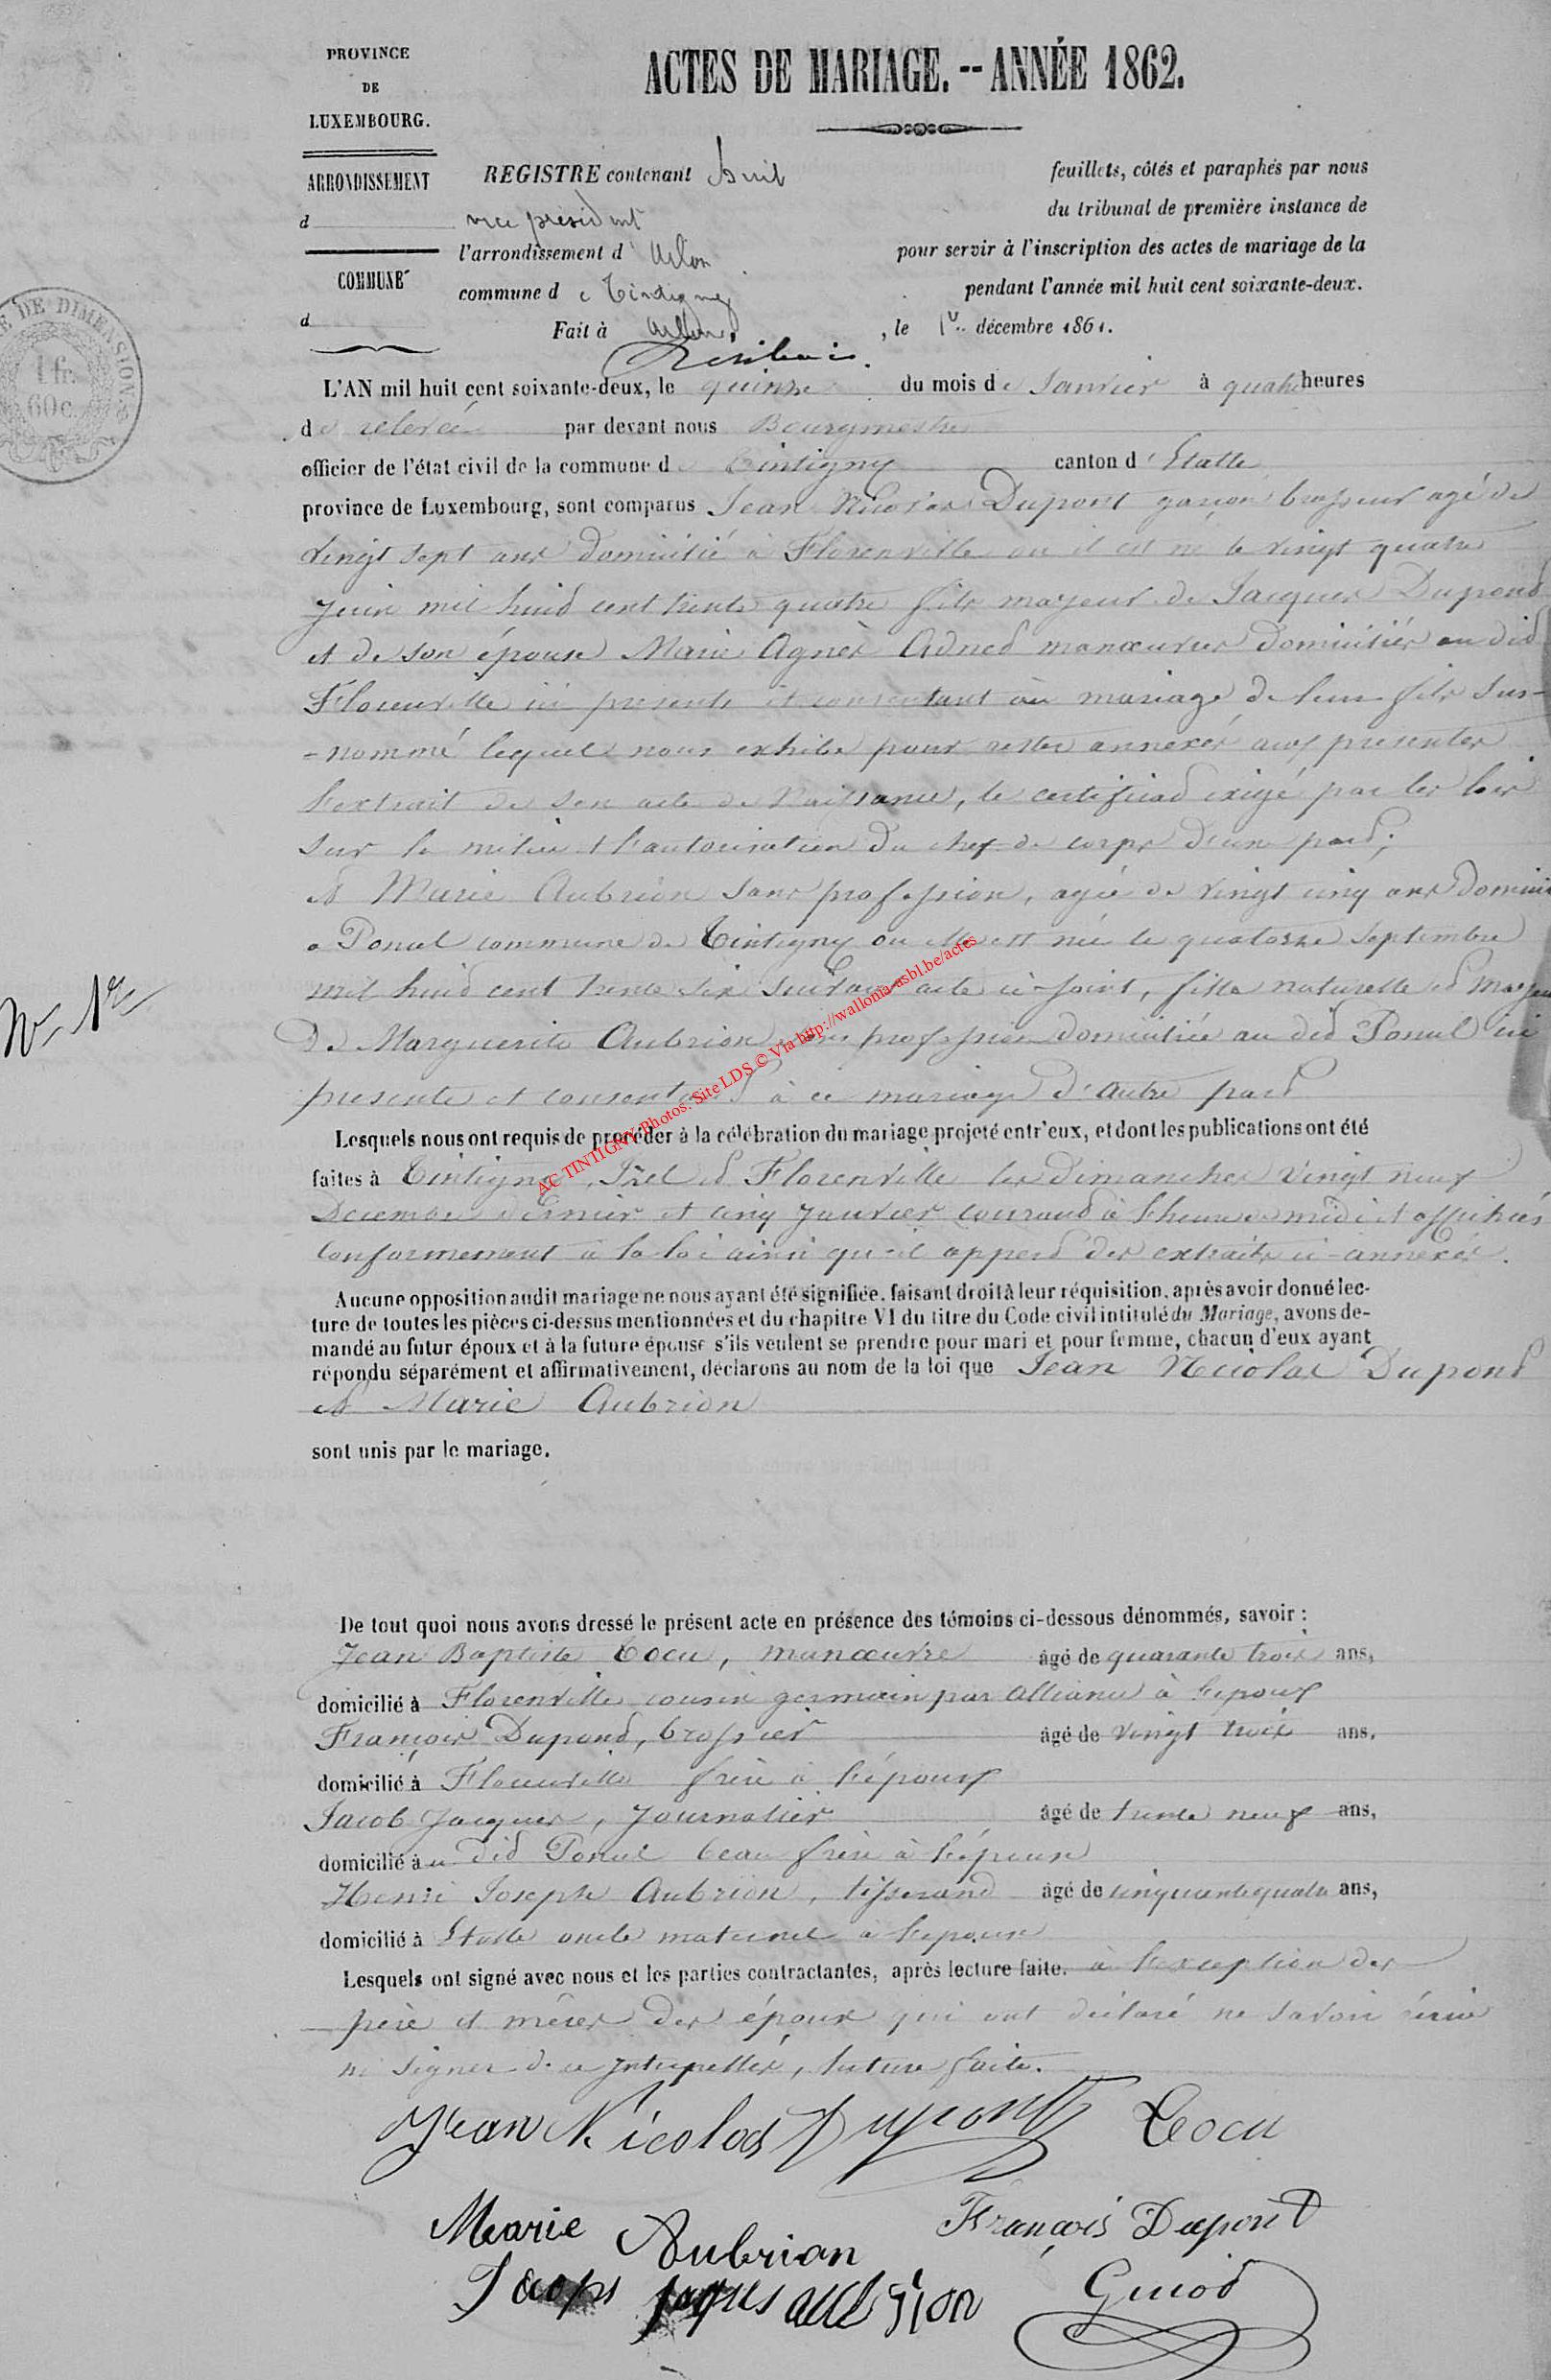 PROVINCE
DE
LUXEMBOURG.
ARRONDISSEMENT
d
COMMUNE
d
ACTES DE MARIAGE. -- ANNÉE 1862.
REGISTRE contenant huit feuillets, côtés et paraphés par nous
vice président du tribunal de première instance de
l'arrondissement d'Arlon pour servir à l'inscription des actes de mariage de la
commune de Tintigny pendant l'année mil huit cent soixante-deux.
Fait à Arlon, le 1er décembre 1861.
E DE DIMENSION
1 fr.
60 c.
L'AN mil huit cent soixante-deux, le quinze du mois de Janvier à quatre heures
de relevée par devant nous Bourgmestre
officier de l'état civil de la commune de Tintigny canton d'Etalle
province de Luxembourg, sont comparus Jean Nicolas Dupont garçon brasseur agé de
vingt sept ans domicilié à Florenville ou il est né le vingt quatre
Juin mil huid cent trente quatre fils majeur de Jacques Dupond
et de son épouse Marie Agnès Adned manœuvres domiciliés au did
Florenville ici présents et consentant au mariage de leur fils sus-
-nommé lequel nous exhibe pour rester annexés aux présentes
l'extrait de son acte de Naissance, le certificad exigé par les lois
sur la milice et l'autorisation du chef de corps d'une pard;
et Marie Aubrion sans profession, agée de vingt cinq ans domicil
a Poncel commune de Tintigny ou elle est née le quatorze Septembre
mil huid cent trente six suivant acte ci-joint, fille naturelle et majeu
N° 1er
De Marguerite Aubrion sans profession domiciliée au did Poncel ici
présente et consentant à ce mariage d'autre pard
Lesquels nous ont requis de procéder à la célébration du mariage projeté entr'eux, et dont les publications ont été
faites à Tintigny, Izel et Florenville les dimanches vingt neuf
Decembre dernier et cinq Janvier courand à l'heure de midi et affichées
conformement à la loi ainsi qu'il apperd des extraits ci-annexés.
Aucune opposition audit mariage ne nous ayant été signifiée, faisant droit à leur réquisition, après avoir donné lec-
ture de toutes les pièces ci-dessus mentionnées et du chapitre VI du titre du Code civil intitulé du Mariage, avons de-
mandé au futur époux et à la future épouse s'ils veulent se prendre pour mari et pour femme, chacun d'eux ayant
répondu séparément et affirmativement, déclarons au nom de la loi que Jean Nicolas Dupond
et Marie Aubrion
sont unis par le mariage.
De tout quoi nous avons dressé le présent acte en présence des témoins ci-dessous dénommés, savoir :
Jean Baptiste Cocu, manœuvre agé de quarante trois ans,
domicilié à Florenville cousin germain par alliance à l'epoux
François Dupond, brossier âgé de vingt trois ans,
domicilié à Florenville frère à l'époux
Jacob Jacques, Journalier âgé de trente neuf ans,
domicilié au did Poncel beau frère à l'épouse
Henri Joseph Aubrion, tisserand âgé de cinquante quatre ans,
domicilié à Etalle oncle maternel à l'epouse
Lesquels ont signé avec nous et les parties contractantes, après lecture faite. à l'exception des
père et mères des époux qui ont déclaré ne savoir écrire
ni signer de ce interpellés, lecture faite.
Jean Nicolas Dupont Cocu
Marie Aubrion François Dupont
Guiod
AC TINTIGNY Photos: Site LDS © Via http://wallonia-asbl.be/actes